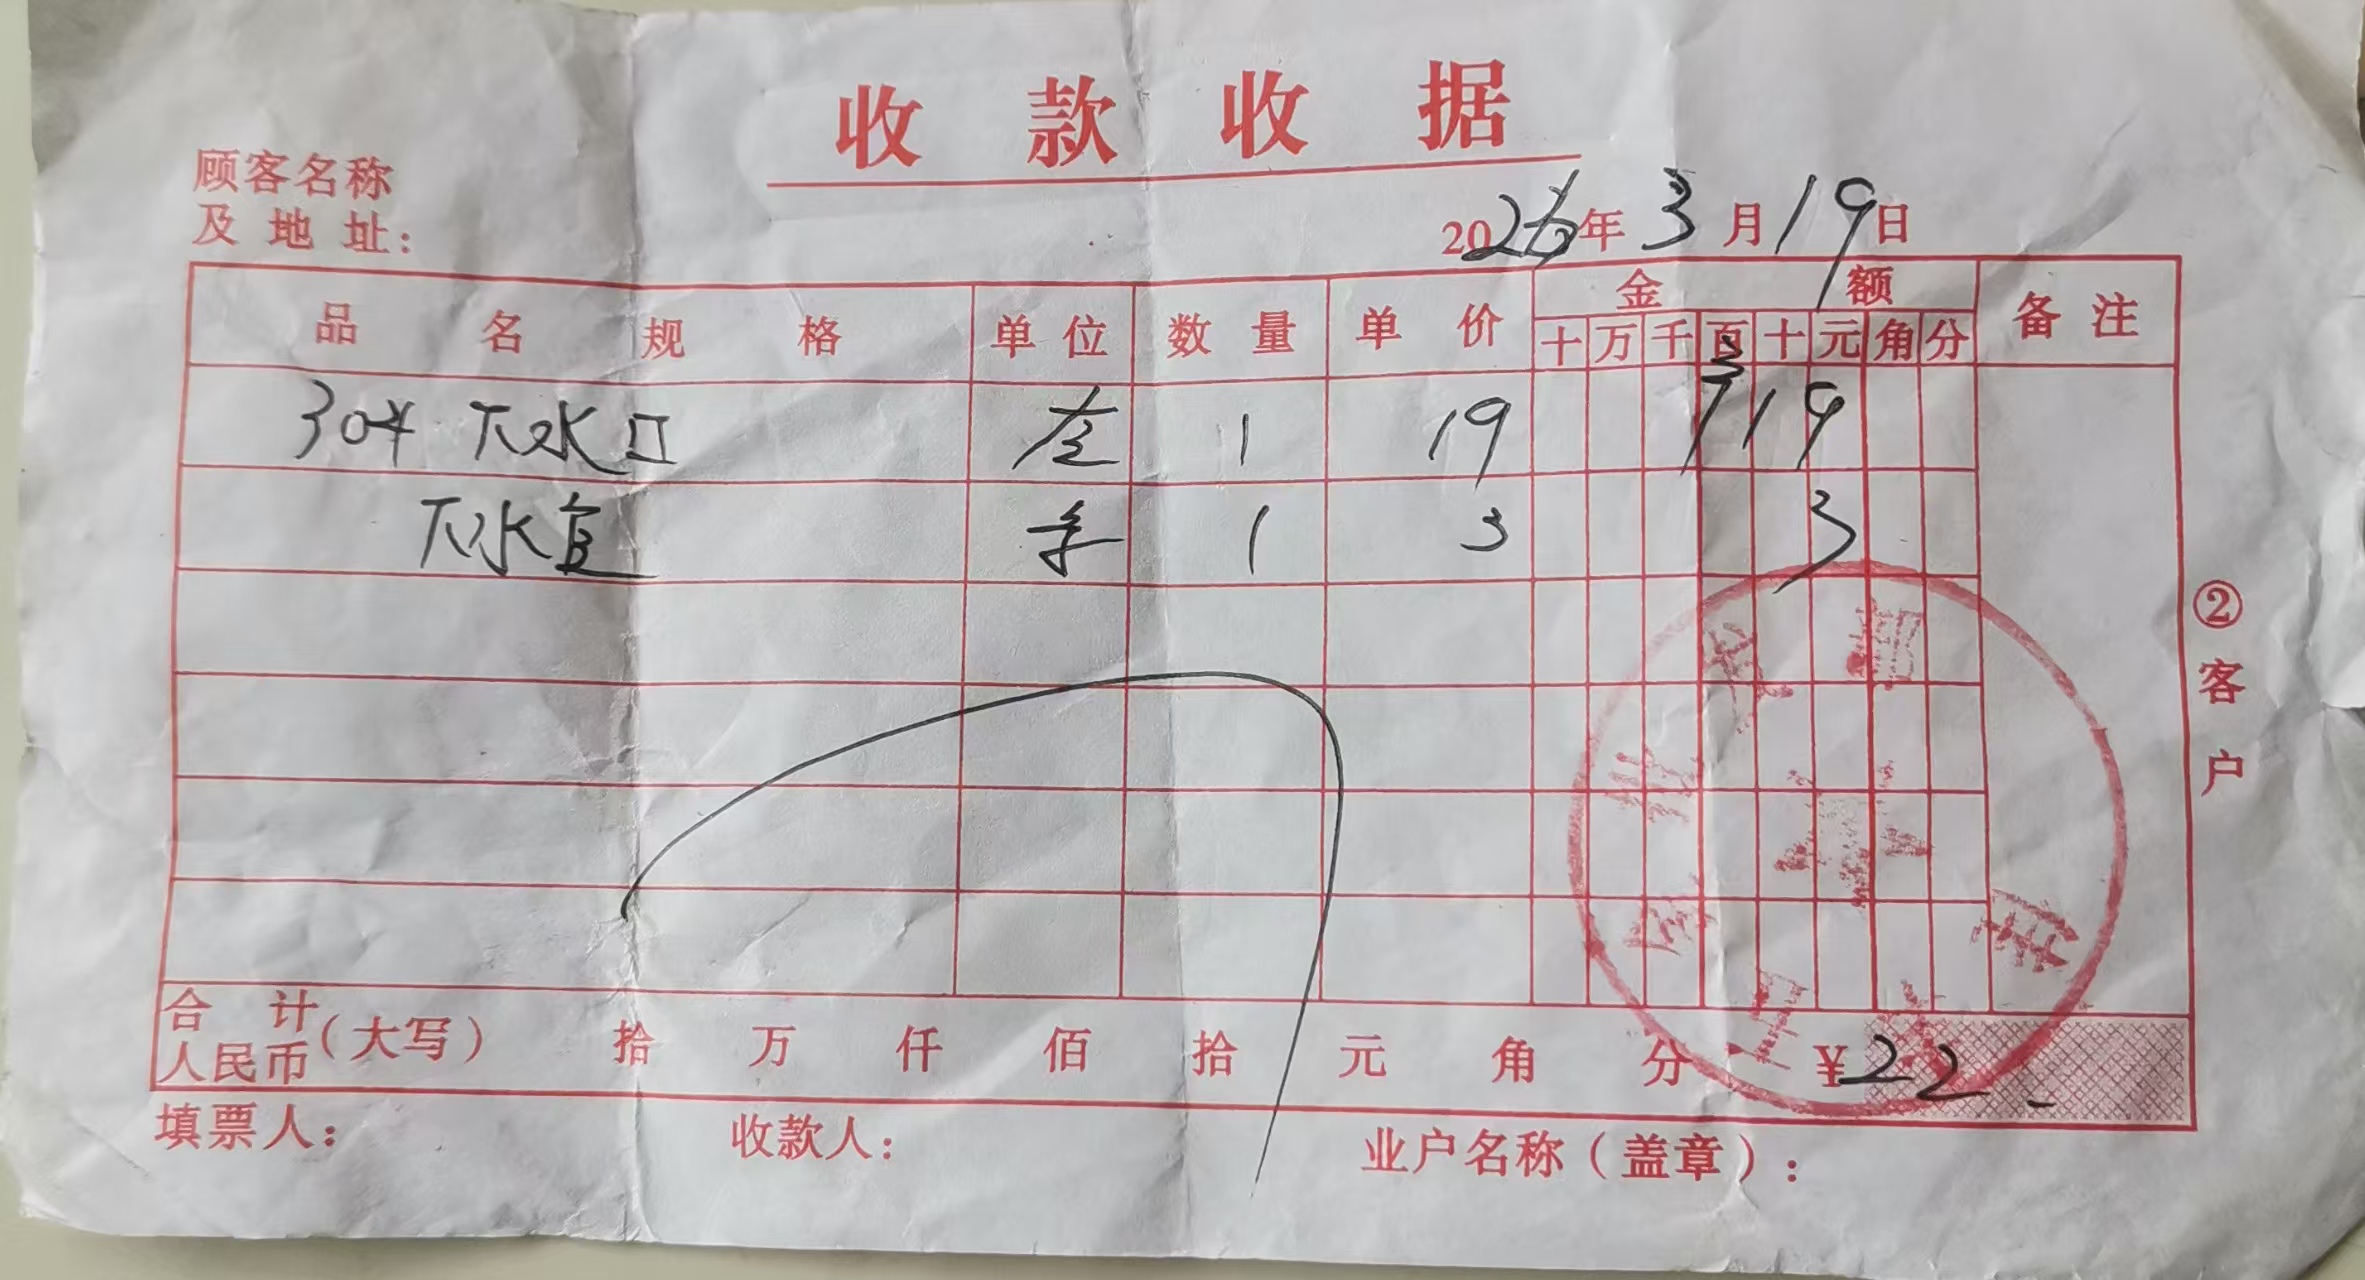 收款收据
顾客名称
及地址：
2026年3月19日
品名规格 单位 数量 单价 金额 备注
十万千百十元角分
304 下水口 套 1 19 ¥19
下水管 1 3 3
合计
人民币（大写） 拾 万 仟 佰 拾 元 角 分 ¥22
填票人： 收款人： 业户名称（盖章）：
②客户